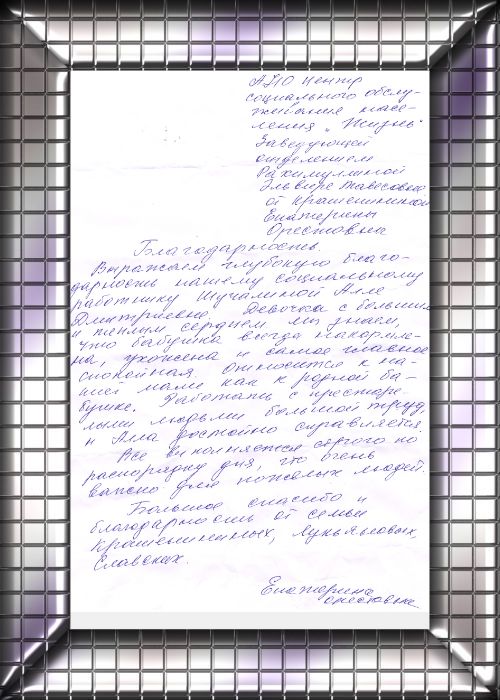 АНО Центр
социального обслу-
живания насе-
ления „Жизнь"
Заведующей
отделением
Рахимуллиной
Эльвире Тависовне
от Крашенинниковой
Екатерины
Орестовны
Благодарность.
Выражаем глубокую благо-
дарность нашему социальному
работнику Шучалиной Алле
Дмитриевне. Девочка с большим
и теплым сердцем. Мы знаем,
что бабушка всегда накормле-
на, ухожена и самое главное
спокойная. Относится к на-
шей маме как к родной ба-
бушке. Работать с престаре
лыми людьми большой труд,
и Алла достойно справляется.
Все выполняется строго по
распорядку дня, что очень
важно для пожилых людей.
Большое спасибо и
благодарность от семьи
Лукьяновых,
Славских.
Екатерина
Орестовна.